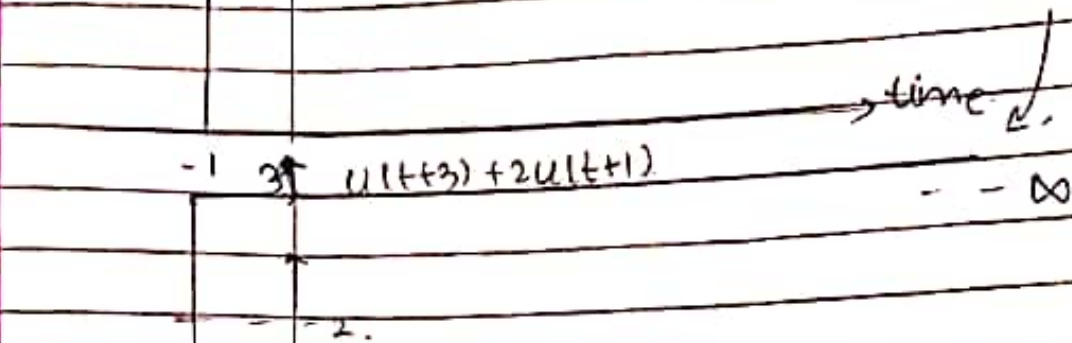 time
-1 3 u(t+3) + 2u(t+1)
- - ∞
- - - 2.